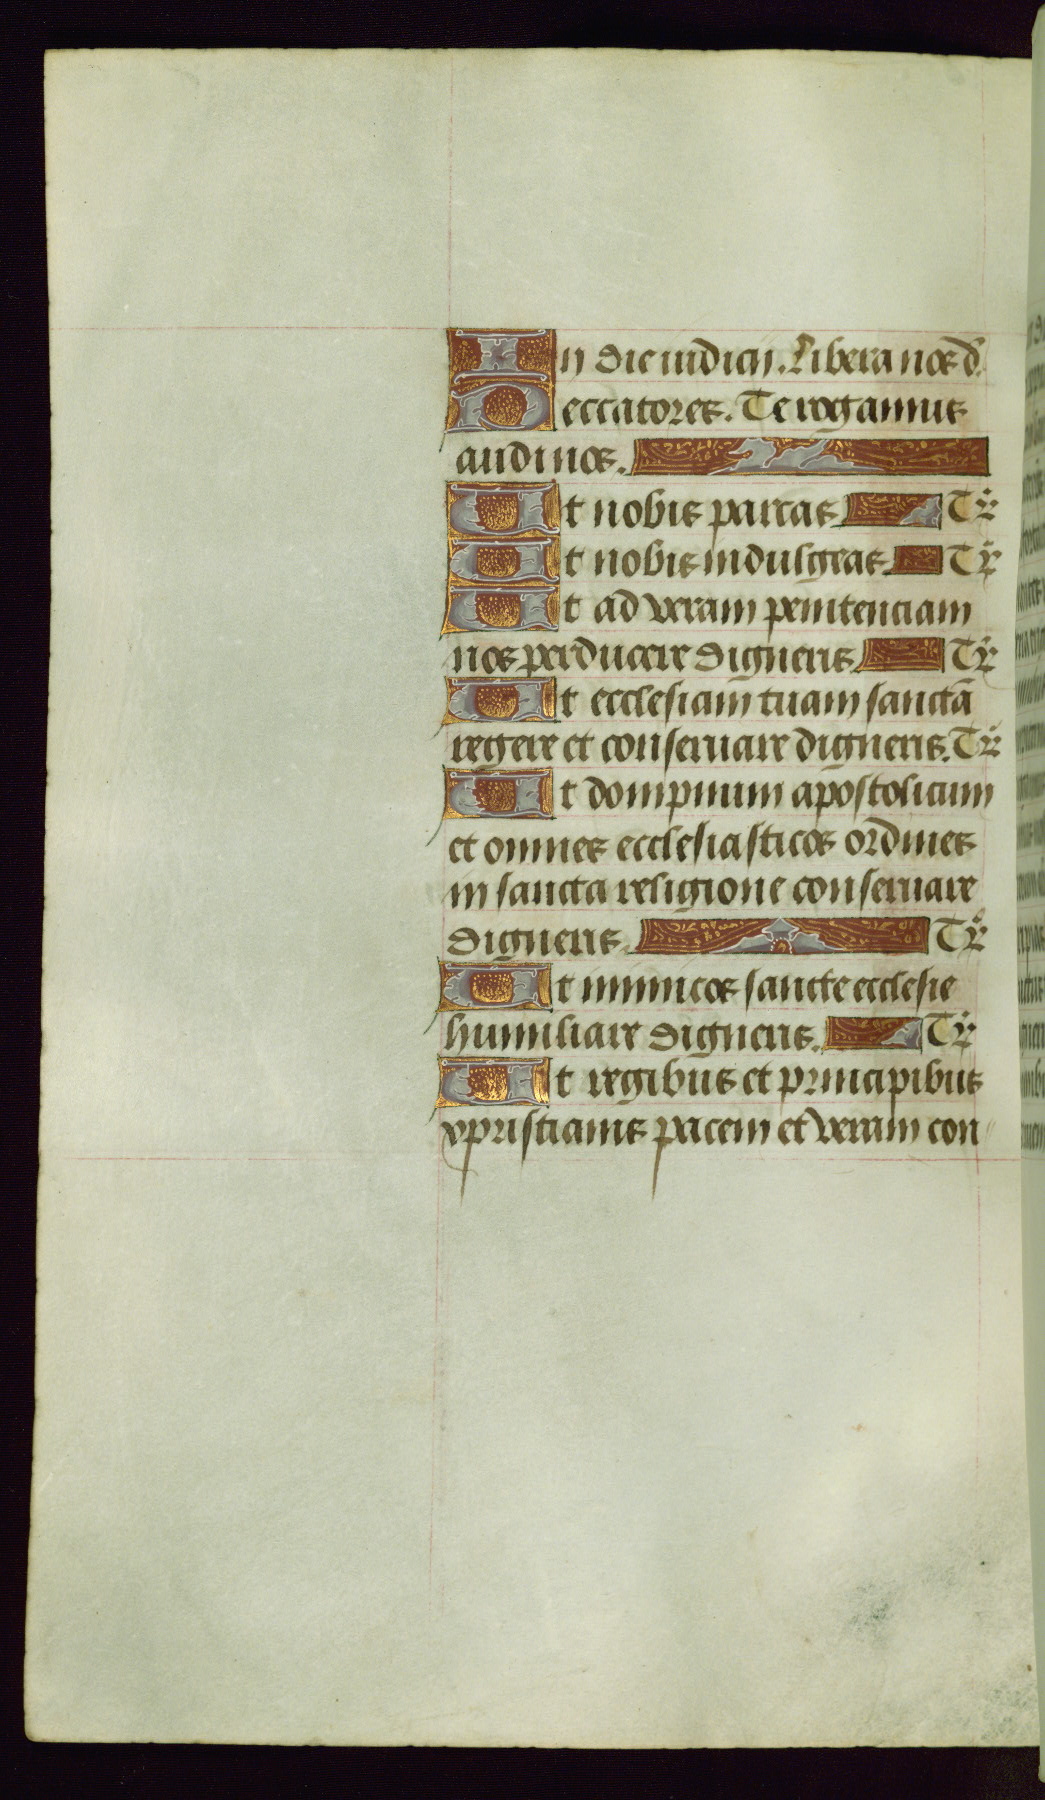 In die iudicij. Libera nos d.
Peccatores. Te rogamus
audi nos.
Ut nobis parcas Tr
Ut nobis indulgeas. Tr
Ut ad veram penitenciam
nos perducere digneris Tr
Ut ecclesiam tuam sanctā
regere et conseruare digneris. Tr
Ut dompnum apostolicum
et omnes ecclesiasticos ordines
in sancta religione conseruare
digneris Tr
Ut inimicos sancte ecclesie
humiliare digneris. Tr
Ut regibus et principibus
xpristianis pacem et veram con